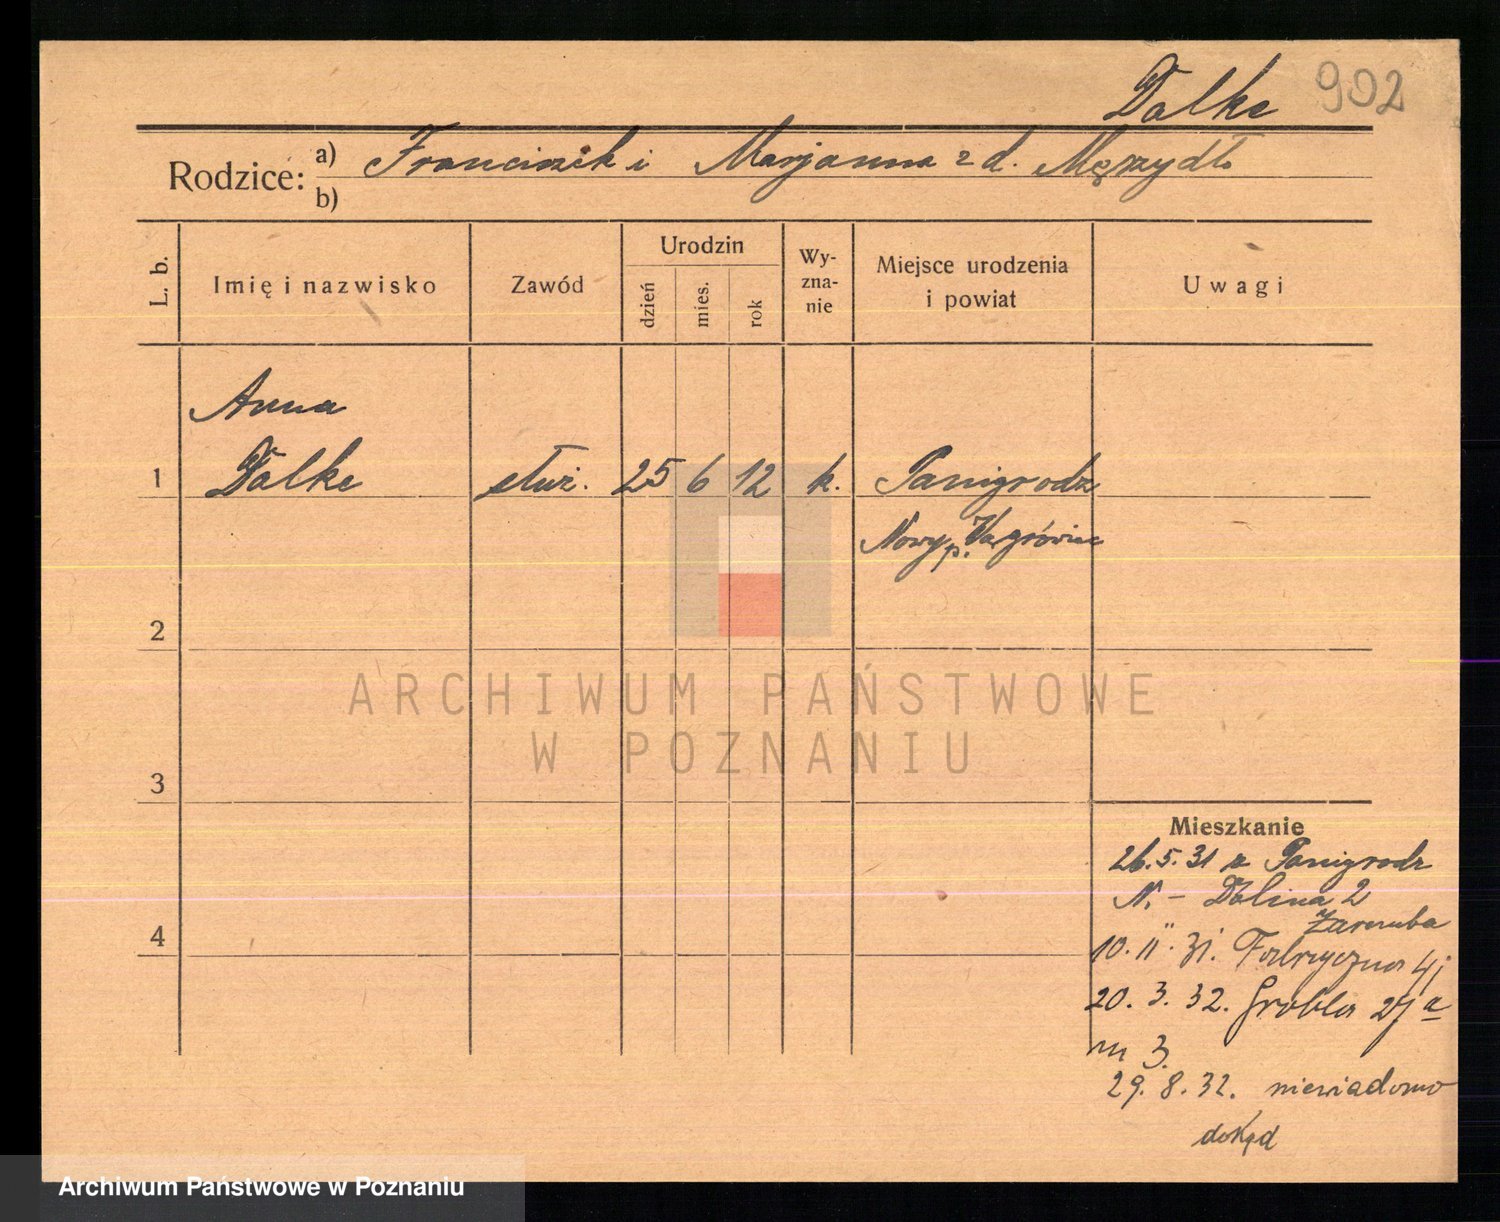 Dalke 902
Rodzice: a) Franciszek i Marjanna z d. Mężydło
b)
L. b. Imię i nazwisko Zawód Urodzin dzień mies. rok Wy-zna-nie Miejsce urodzenia i powiat Uwagi
Anna
1 Dalke służ. 25 6 12 k. Panigrodz
Nowy p. Wągrówiec
2
ARCHIWUM PAŃSTWOWE
W POZNANIU
3
Mieszkanie
26.5.31 z Panigrodz
N. – Dolina 2
Zaremba
4
10.11.31. Fabryczna 4
20.3.32. Grobla 27a
m 3.
29.8.32. niewiadomo
dokąd
Archiwum Państwowe w Poznaniu